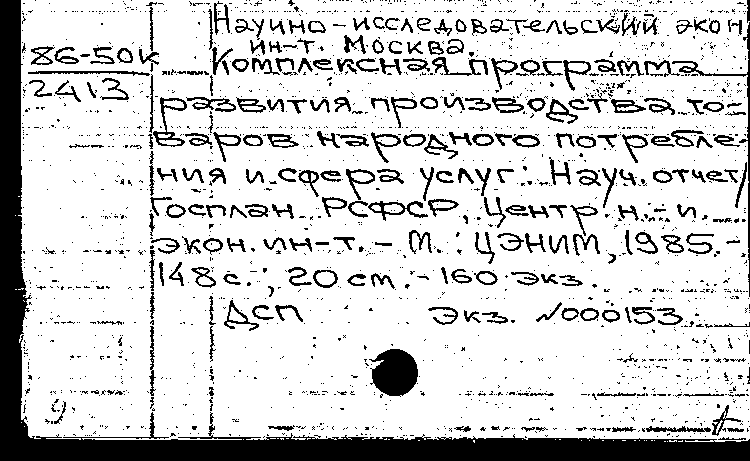 Научно-исследовательский экон.
86-50к
ин-т. Москва.
Комплексная программа
2413
развития производства то-
варов народного потребле-
ния и сфера услуг: Науч. отчет/
Госплан РСФСР, Центр. н.-и.
экон. ин-т. – М.: ЦЭНИМ, 1985. –
148 с.; 20 см. – 160 экз.
ДСП Экз. №000153
9